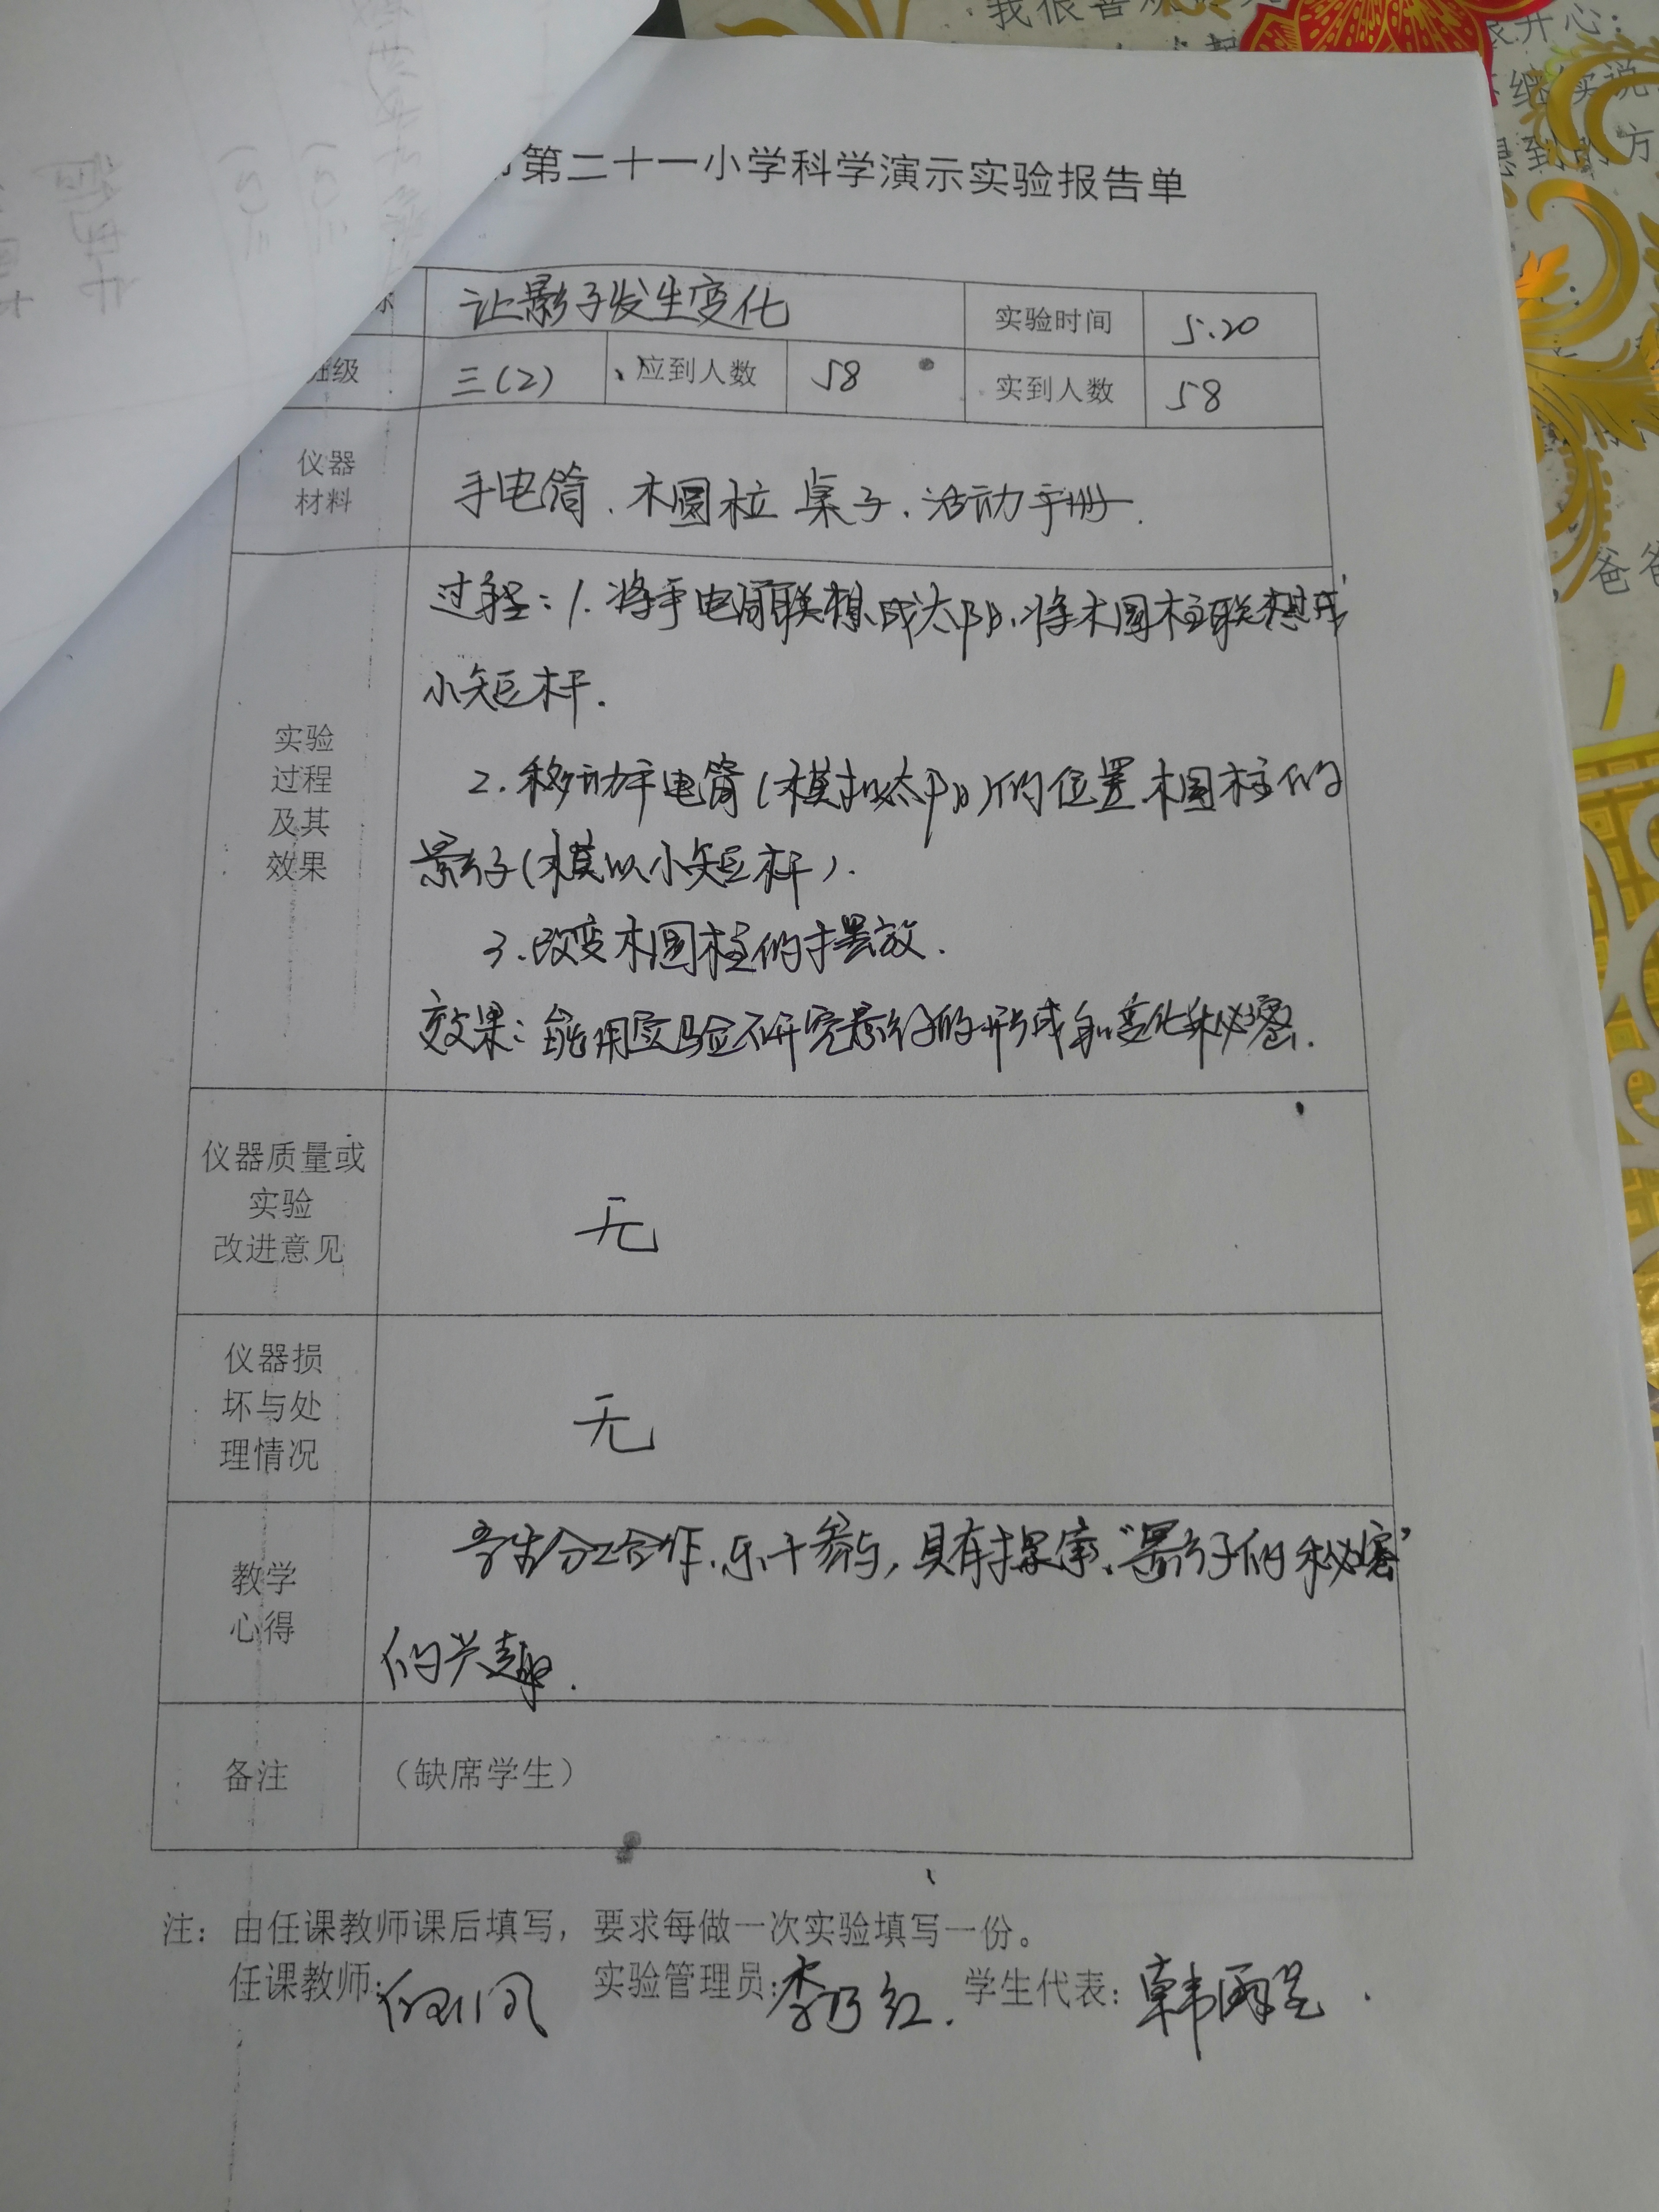 第二十一小学科学演示实验报告单
让影子发生变化 实验时间 5.20
班级 三(2) 应到人数 58 实到人数 58
仪器
材料
手电筒、木圆柱 桌子、活动手册.
实验
过程
及其
效果
过程:1.将手电筒联想成太阳、将木圆柱联想成
小矩杆.
2.移动手电筒(模拟太阳)的位置木圆柱的
影子(模以小矩杆).
3.改变木圆柱的摆放.
效果:能用实验研究影子的形成和变化秘密.
仪器质量或
实验
改进意见
无
仪器损
坏与处
理情况
无
教学
心得
学生分工合作、乐于参与,具有探索、“影子的秘密”
的兴趣.
备注
(缺席学生)
注:由任课教师课后填写,要求每做一次实验填写一份。
任课教师: 实验管理员:李乃红. 学生代表:韩雨
我很喜欢
开心:
继续说
想到的方
爸爸